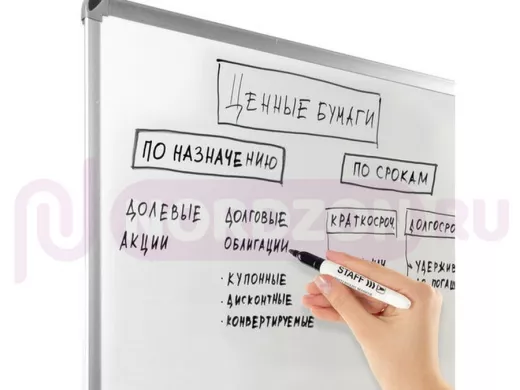 ЦЕННЫЕ БУМАГИ
ПО НАЗНАЧЕНИЮ
ПО СРОКАМ
ДОЛЕВЫЕ
АКЦИИ
ДОЛГОВЫЕ
ОБЛИГАЦИИ
· КУПОННЫЕ
· ДИСКОНТНЫЕ
· КОНВЕРТИРУЕМЫЕ
КРАТКОСРОЧ
ДОЛГОСРО
УДЕРЖИВ
ДО ПОГАШ
STAFF
NORDZON.RU